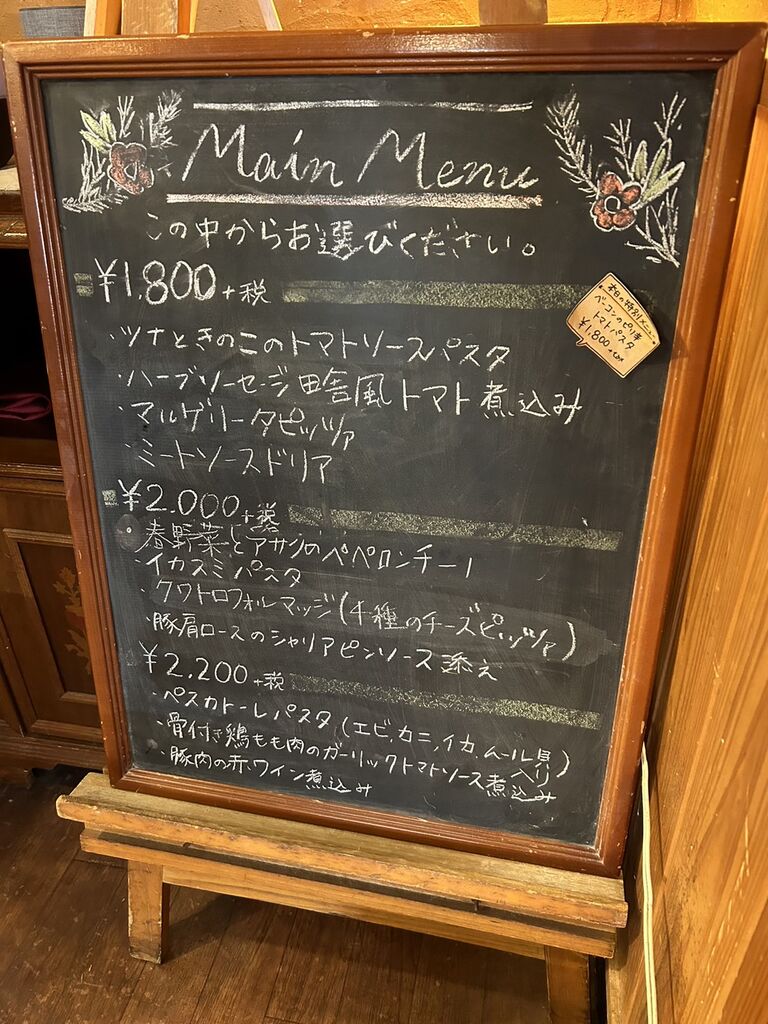 Main Menu
この中からお選びください。
¥1,800+税
本日の特別メニュー
ベーコンのピリ辛
トマトパスタ
¥1,800+tax
・ツナときのこのトマトソースパスタ
・ハーブソーセージ田舎風トマト煮込み
・マルゲリータピッツァ
・ミートソースドリア
¥2.000+税
・春野菜とアサリのペペロンチーノ
・イカスミパスタ
・クワトロフォルマッジ(4種のチーズピッツァ)
・豚肩ロースのシャリアピンソース添え
¥2.200+税
・ペスカトーレパスタ(エビ,カニ,イカ,ムール貝入り)
・骨付き鶏もも肉のガーリックトマトソース煮込み
・豚肉の赤ワイン煮込み